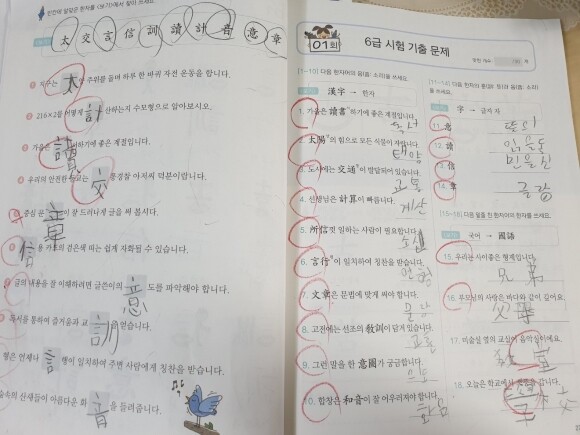 빈칸에 알맞은 한자를 <보기>에서 찾아 쓰세요.
太 交 言 信 訓 讀 計 音 意 章
지구는 太양 주위를 돌며 하루 한 바퀴 자전 운동을 합니다.
216×2를 어떻게 計산하는지 수모형으로 알아보시오.
가을은 讀
우리의 안전한 交통경찰 아저씨 덕분이랍니다.
중심 문章이 잘 드러나게 글을 써 봅시다.
信용 카드의 검은색 띠는 쉽게 자화될 수 있습니다.
글의 내용을 잘 이해하려면 글쓴이의 意도를 파악해야 합니다.
독서를 통하여 즐거움과 교訓을 얻습니다.
형은 언제나 言행이 일치하여 주변 사람에게 칭찬을 받습니다.
숲속의 산새들이 아름다운 화音을 들려줍니다.
01회
6급 시험 기출 문제
[1~10] 다음 한자어의 음(音: 소리)을 쓰세요.
漢字 → 한자
1. 가을은 讀書하기에 좋은 계절입니다.
독서
2. 太陽의 힘으로 모든 식물이 자랍니다.
태양
3. 도시에는 交通이 발달되어 있습니다.
교통
4. 선생님은 計算이 빠릅니다.
계산
5. 所信껏 일하는 사람이 필요합니다.
소신
6. 言行이 일치하여 칭찬을 받습니다.
언행
7. 文章은 문법에 맞게 써야 합니다.
문장
8. 고전에는 선조의 敎訓이 담겨 있습니다.
교훈
9. 그런 말을 한 意圖가 궁금합니다.
의도
10. 합창은 和音이 잘 어우러져야 합니다.
화음
[11~14] 다음 한자의 훈(訓: 뜻)과 음(音: 소리)을 쓰세요.
字 → 글자 자
11. 意
뜻 의
12. 讀
읽을 독
13. 信
믿을 신
14. 章
글 장
[15~18] 다음 밑줄 친 한자어의 한자를 쓰세요.
국어 → 國語
15. 우리는 사이좋은 형제입니다.
兄弟
16. 부모님의 사랑은 바다와 같이 깊어요.
父母
17. 미술실 옆의 교실이 음악실이에요.
18. 오늘은 학교에서